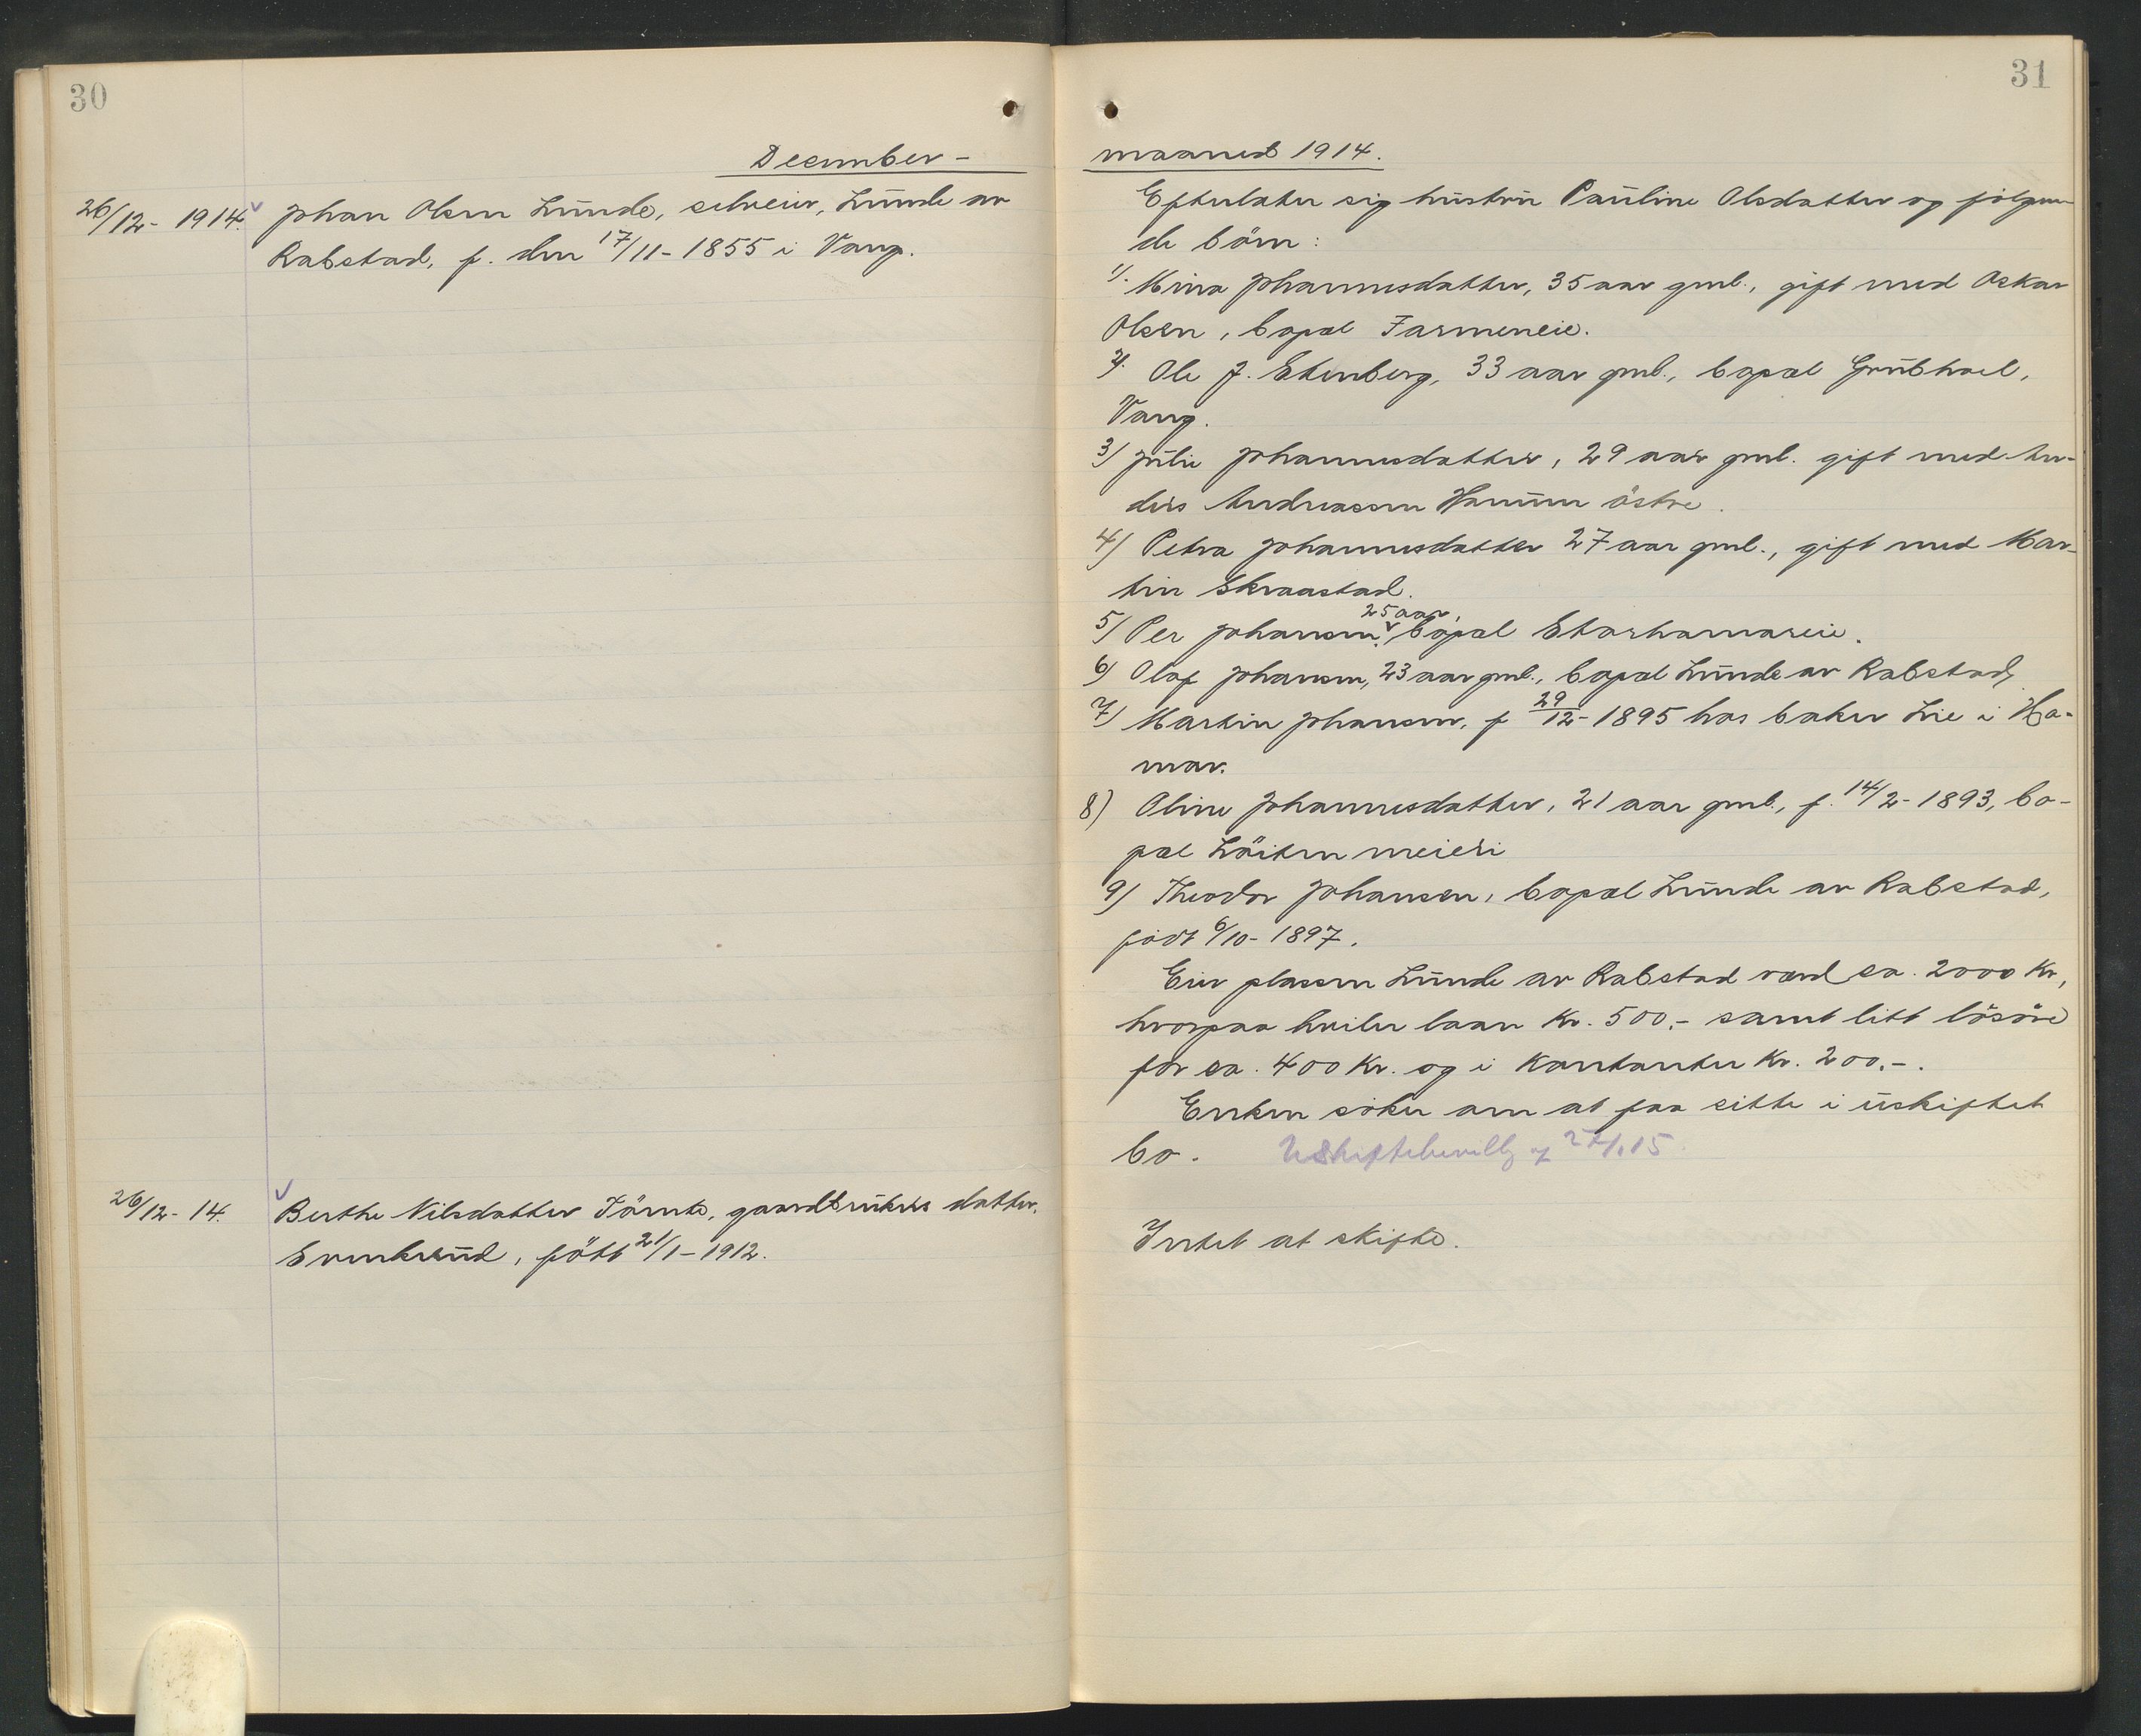 30
December-
26/12- 1914. Johan Olsen Lunde, selveier, Lunde av
Rabstad, f. den 17/11- 1855 i Vang.
26/12- 14. Berthe Nilsdatter Törnte, gaardbrukers datter,
Svenkerud, fött 21/1- 1912.
31
maaned 1914.
Efterlater sig hustru Pauline Olsdatter og følgen-
de börn:
1/. Mina Johannesdatter, 35 aar gml., gift med Oskar
Olsen, bopæl Farmeneie.
2/. Ole J. Stenberg, 33 aar gml., bopæl Grubhoel,
Vang.
3/ Julie Johannesdatter, 29 aar gml. gift med An-
ders Andreassen Hamum östre.
4/ Petra Johannesdatter 27 aar gml., gift med Mar-
tin Skraastad.
5/ Per Johansen, 25 aar, bopæl Storhamareie.
6/ Olaf Johansen, 23 aar gml., bopæl Lunde av Rabstad,
7/ Martin Johansen, f 29/12- 1895 hos baker Lie i Ha-
mar.
8) Oline Johannesdatter, 21 aar gml., f. 14/2- 1893, bo-
pæl Löiten meieri
9/ Theodor Johansen, bopæl Lunde av Rabstad,
födt 6/10- 1897.
Eier plassen Lunde av Rabstad værd ca. 2000 Kr,
hvorpaa hviler laan Kr. 500.- samt litt lösöre
for ca. 400 Kr. og i Kontanter Kr. 200.-.
Enken söker om at faa sitte i uskiftet
bo. Uskiftebevillg af 27/1 15.
Intet at skifte.